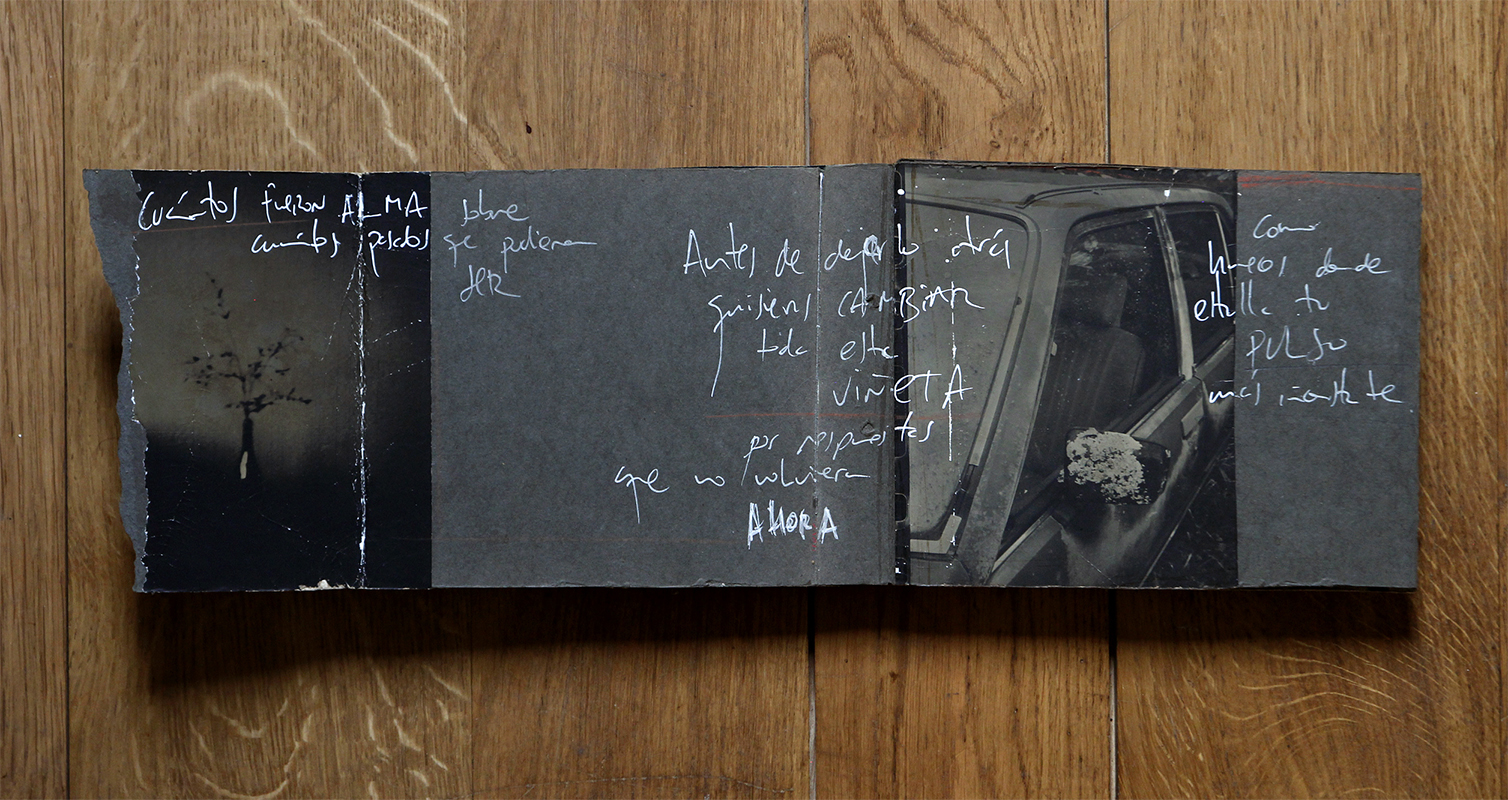 Cuántos fueron ALMA
cuántos pasados
sobre
que pudieran
SER
Antes de dejarlo atrás
quisiera CAMBIAR
toda esta
VIÑETA
por respuestas
que no volvieran
AHORA
Como
huecos donde
estalla tu
PULSO
más